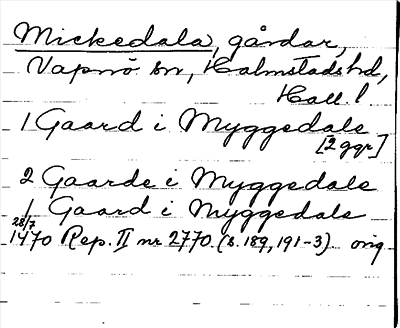 Mickedala, gårdar,
Vapnö sn, Halmstads hd,
Hall. l
1 Gaard i Myggedale
[2 ggr]
2 Gaarde i Myggedale
1 Gaard i Myggedale
28/7
1470 Rep. II nr 2770. (s. 189, 191-3). orig